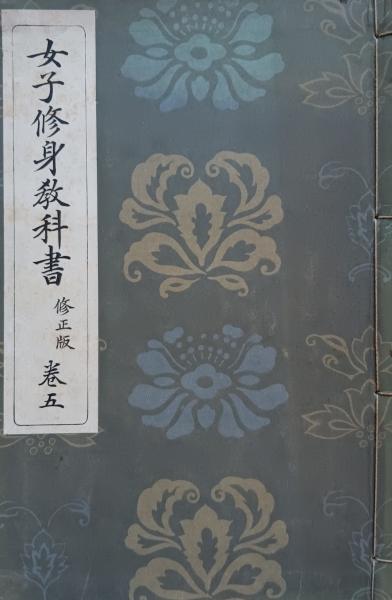 女子修身教科書 修正版 卷五